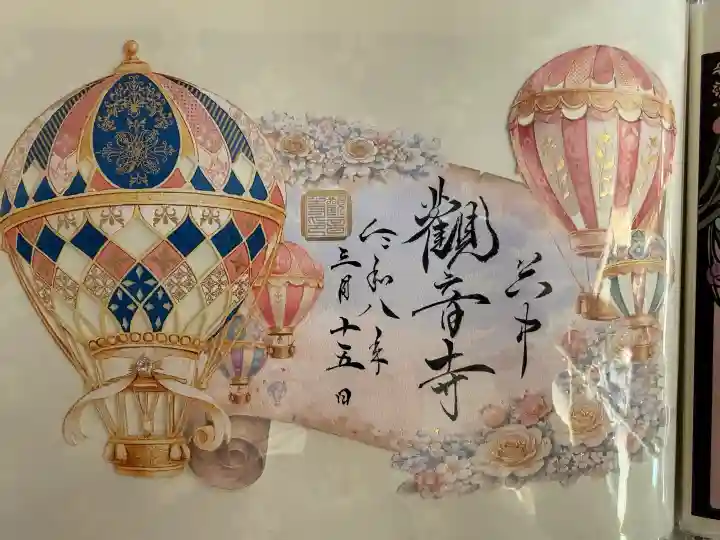 觀音寺
令和八年
三月十五日